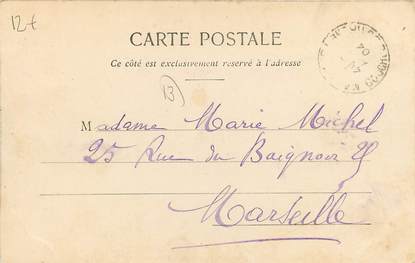 12+
CARTE POSTALE
Ce côté est exclusivement reservé à l'adresse
13
Madame Marie Michel
25 Rue du Baignoir 25
Marseille